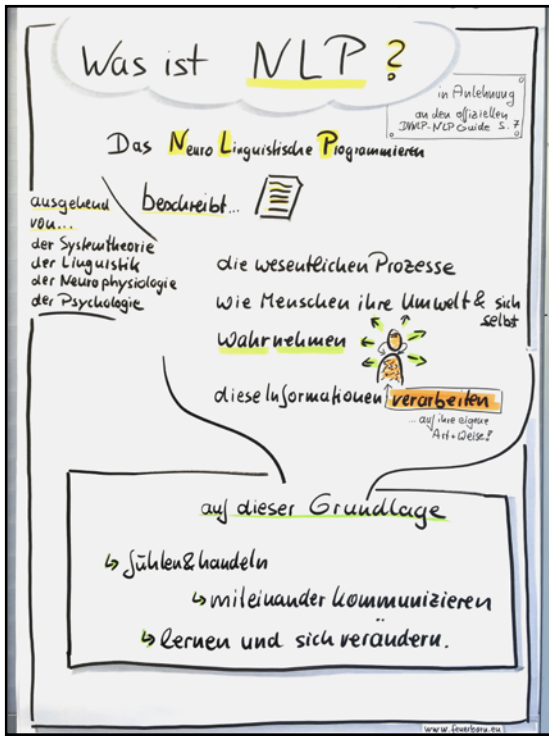 Was ist NLP?
in Anlehnung
an den offiziellen
DVNLP-NLP Guide S. 7
Das Neuro Linguistische Programmieren
ausgehend
von...
der Systemtheorie
der Linguistik
der Neurophysiologie
der Psychologie
beschreibt...
die wesentlichen Prozesse
wie Menschen ihre Umwelt & sich
selbst
wahrnehmen
diese Informationen verarbeiten
... auf ihre eigene
Art + Weise!
auf dieser Grundlage
↳ fühlen & handeln
↳ miteinander kommunizieren
↳ lernen und sich verändern.
www.feuerborn.eu